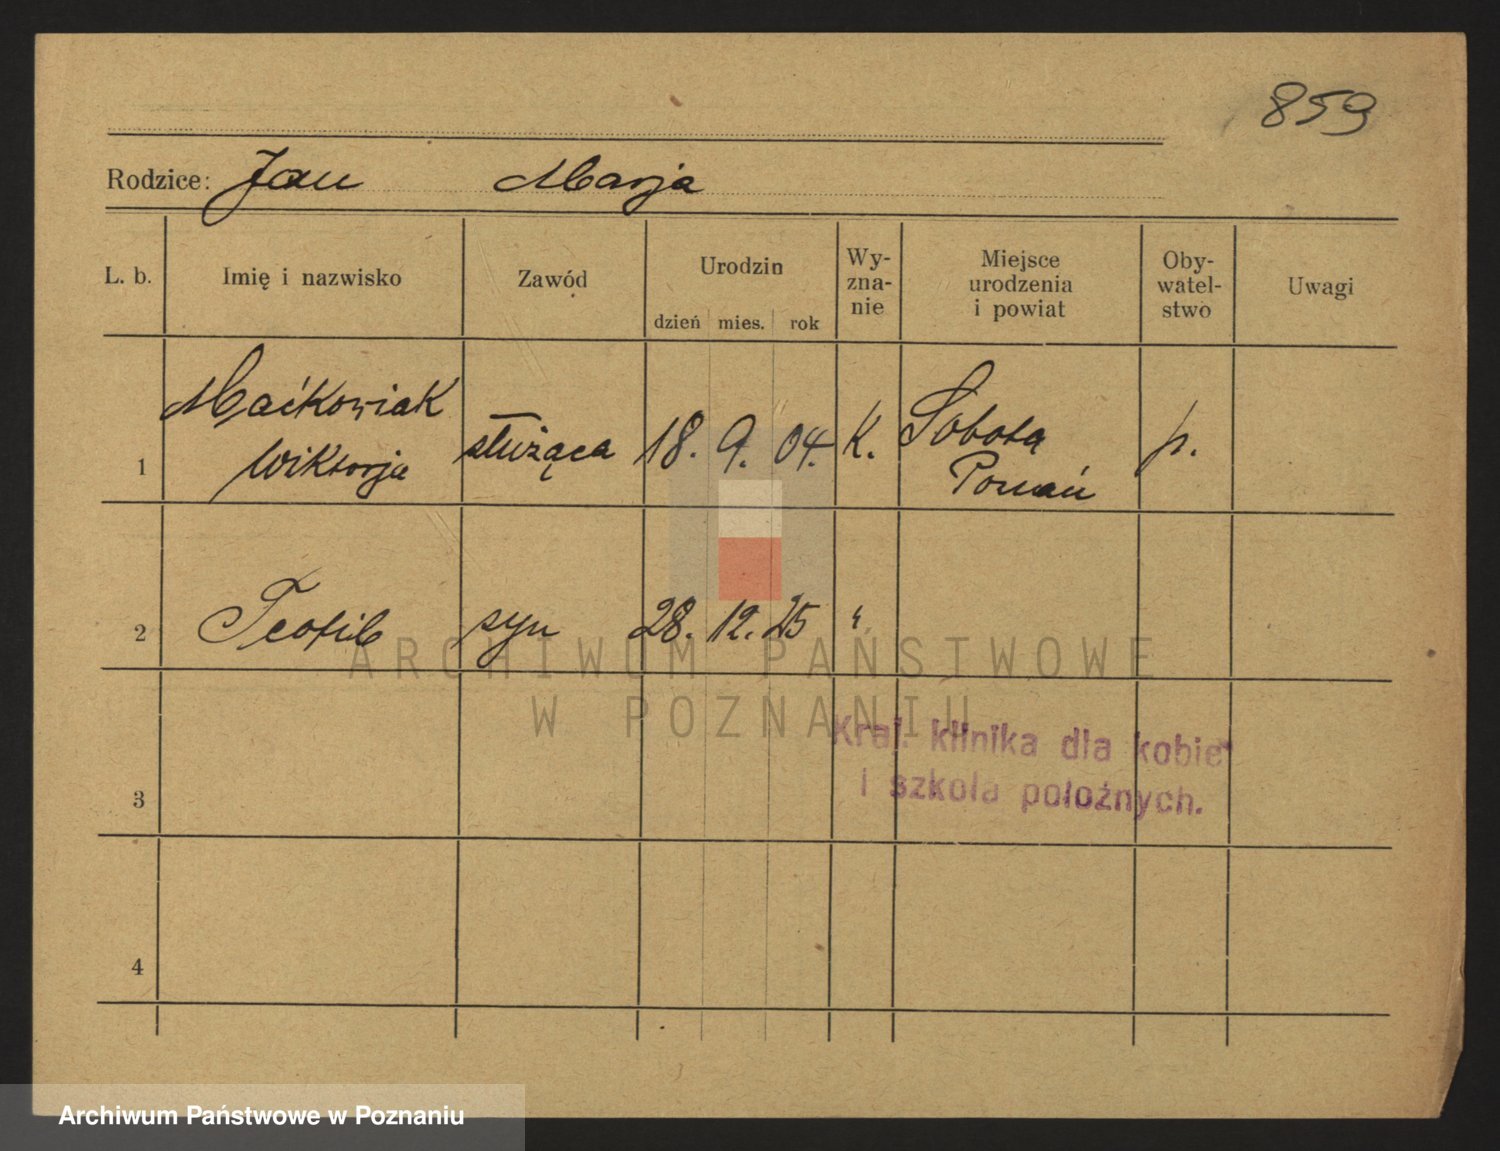 859
Rodzice: Jan Marja
L. b. Imię i nazwisko Zawód Urodzin dzień mies. rok Wy-zna-nie Miejsce urodzenia i powiat Oby-watel-stwo Uwagi
1 Maćkowiak Wiktorja służąca 18. 9. 04. K. Sobota Poznań p.
2 Teofil syn 28. 12. 25 "
ARCHIWUM PAŃSTWOWE
W POZNANIU
Kraj. klinika dla kobiet
i szkola położnych.
3
4
Archiwum Państwowe w Poznaniu